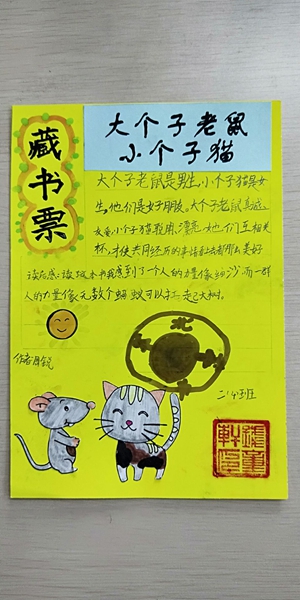 藏书票
大个子老鼠
小个子猫
大个子老鼠是男生,小个子猫是女
生,他们是好朋友。大个子老鼠真诚
友爱,小个子猫聪明、漂亮。她们互相关
怀,才使共同经历的事情都那么美好
读后感:读这本书我感到了一个人的力量像细沙,而一群
人的力量像无数个蚂蚁可以扛起大树。
北
二